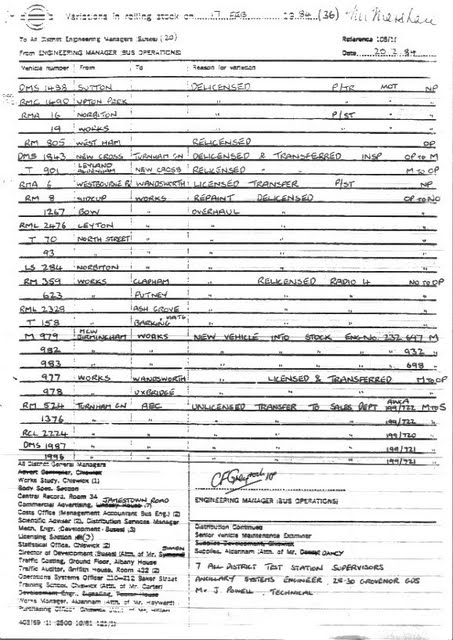 Variations in rolling stock on 17 FEB 1984 (36)
To All District Engineering Managers (Buses) (20) Reference 108/1
From ENGINEERING MANAGER (BUS OPERATIONS) Date 20.2.84
Vehicle number From To Reason for variation
DMS 1438 SUTTON DELICENSED P/TR MOT NP
RMC 1490 UPTON PARK " " " "
RMA 16 NORBITON " P/ST " "
19 WORKS " " " "
RM 805 WEST HAM RELICENSED OP
DMS 1843 NEW CROSS TURNHAM GN DELICENSED & TRANSFERRED INSP OP TO M
T 901 LEYLAND NEW CROSS RELICENSED " " M TO OP
RMA 6 WESTBOURNE PK WANDSWORTH LICENSED TRANSFER P/ST NP
RM 8 SIDCUP WORKS REPAINT DELICENSED OP TO NO
1267 BOW " OVERHAUL " "
RML 2476 LEYTON " " " "
T 70 NORTH STREET " " " "
93 " " " " "
LS 284 NORBITON " " " "
RM 359 WORKS CLAPHAM RELICENSED RADIO 4 NO TO OP
623 " PUTNEY " "
RML 2329 " ASH GROVE " "
T 158 " BARKING " "
M 979 MCW BIRMINGHAM WORKS NEW VEHICLE INTO STOCK ENG NO. 232 647 M
982 " " " " " 932 "
983 " " " " " 698 "
977 WORKS WANDSWORTH " LICENSED & TRANSFERRED M TO OP
978 " UXBRIDGE " " " "
RM 524 TURNHAM GN AEC UNLICENSED TRANSFER TO SALES DEPT 199/722 M TO S
1376 " " " " " 199/722 "
RCL 2224 " " " " " 199/720 "
DMS 1987 " " " " " 199/721 "
1996 " " " " " 199/721 "
All District General Managers
Works Study, Chiswick (1)
Body Spec. Section
Central Record, Room 34 JAMESTOWN ROAD
Commercial Advertising,
Costs Office (Management Accountant Bus Eng.) (2)
Scientific Adviser (2), Distribution Services Manager
Mech. Engr. (Development - Buses) (3)
Licensing Section (3)
Statistical Office, Chiswick (2)
Director of Development (Buses) (Attn. of Mr.
Traffic Costing, Ground Floor, Albany House
Traffic Auditor, British House, Room 432 (2)
Operations Systems Officer 210-212 Baker Street
Training School, Chiswick (Attn. of Mr. Carter)
Works Manager, Aldenham (Attn. of Mr. Hayward)
Purchasing Officer
ENGINEERING MANAGER (BUS OPERATIONS)
Distribution Continued
Senior Vehicle Maintenance Examiner
Supplies Development, Chiswick
Supplies, Aldenham (Attn. of Mr. DANCY)
7 ALL DISTRICT TEST STATION SUPERVISORS
ANCILLARY SYSTEMS ENGINEER, 25-30 GROVENOR GDS
Mr J. POWELL, TECHNICAL